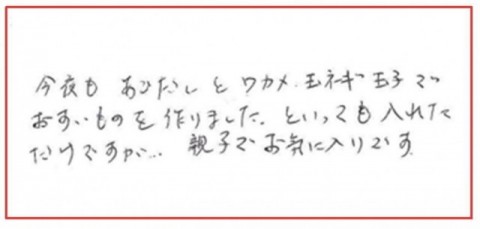 今夜も あごだし と ワカメ.玉ネギ 玉子で
おすいものを 作りました. といっても 入れた
だけですが... 親子で お気に入りです